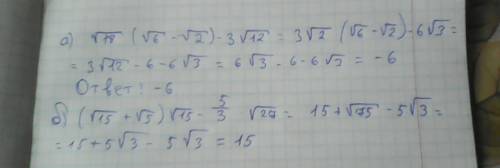 а) √18 (√6 - √2) - 3√12 = 3√2 (√6 - √2) - 6√3 =
= 3√12 - 6 - 6√3 = 6√3 - 6 - 6√3 = -6
Ответ: -6
б) (√15 + √5) √15 - 5/3 √27 = 15 + √75 - 5√3 =
= 15 + 5√3 - 5√3 = 15